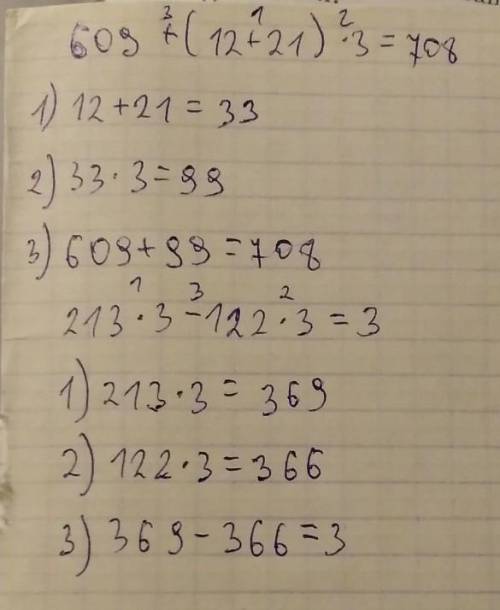 609 +³ (12 +¹ 21) ·² 3 = 708
1) 12 + 21 = 33
2) 33 · 3 = 99
3) 609 + 99 = 708
213 ·¹ 3 -³ 122 ·² 3 = 3
1) 213 · 3 = 369
2) 122 · 3 = 366
3) 369 - 366 = 3